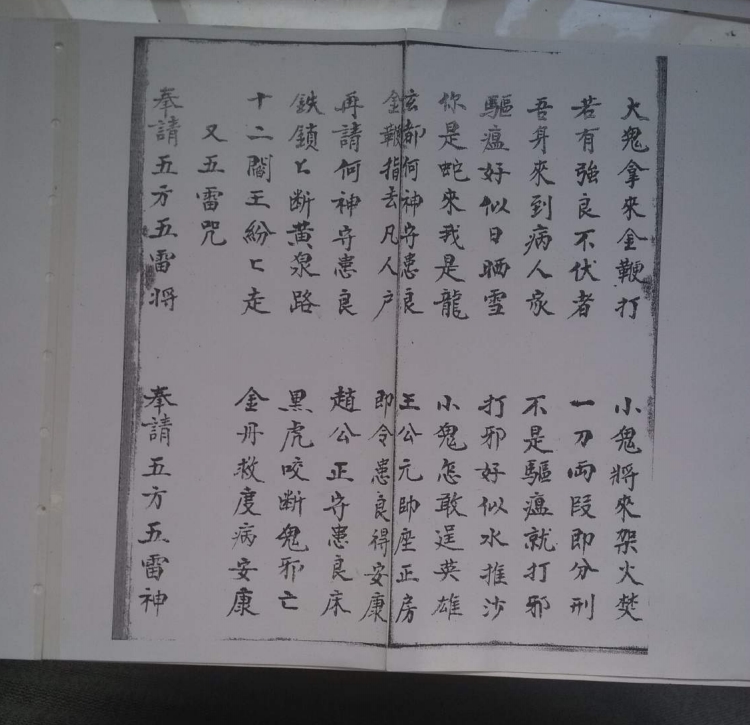 大鬼拿來金鞭打　小鬼將來架火焚
若有強良不伏者　一刀両段即分刑
吾身來到病人家　不是驅瘟就打邪
驅瘟好似日晒雪　打邪好似水推沙
你是蛇來我是龍　小鬼怎敢逞英雄
玄都何神守患良　王公元帅座正房
金鞭指去凡人户　即令患良得安康
再請何神守患良　趙公正守患良床
鉄鎖匕断黄泉路　黑虎咬断鬼邪亡
十二閻王紛匕走　金丹救度病安康
又五雷咒
奉請五方五雷将　奉請五方五雷神